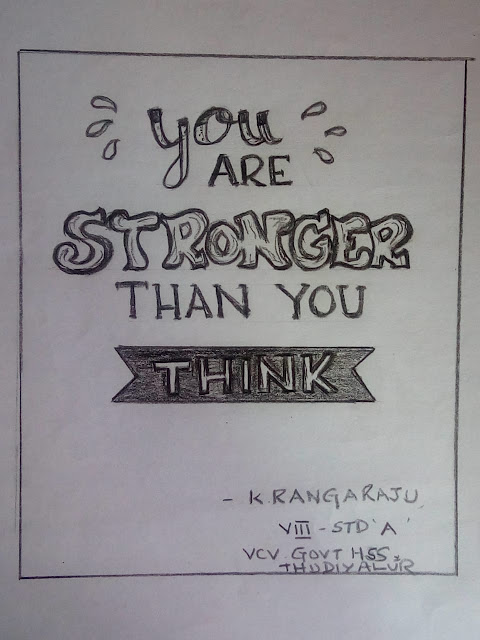 you
ARE
STRONGER
THAN YOU
THINK
- K.RANGARAJU
VIII - STD 'A'
VCV GOVT HSS,
THUDIYALUR